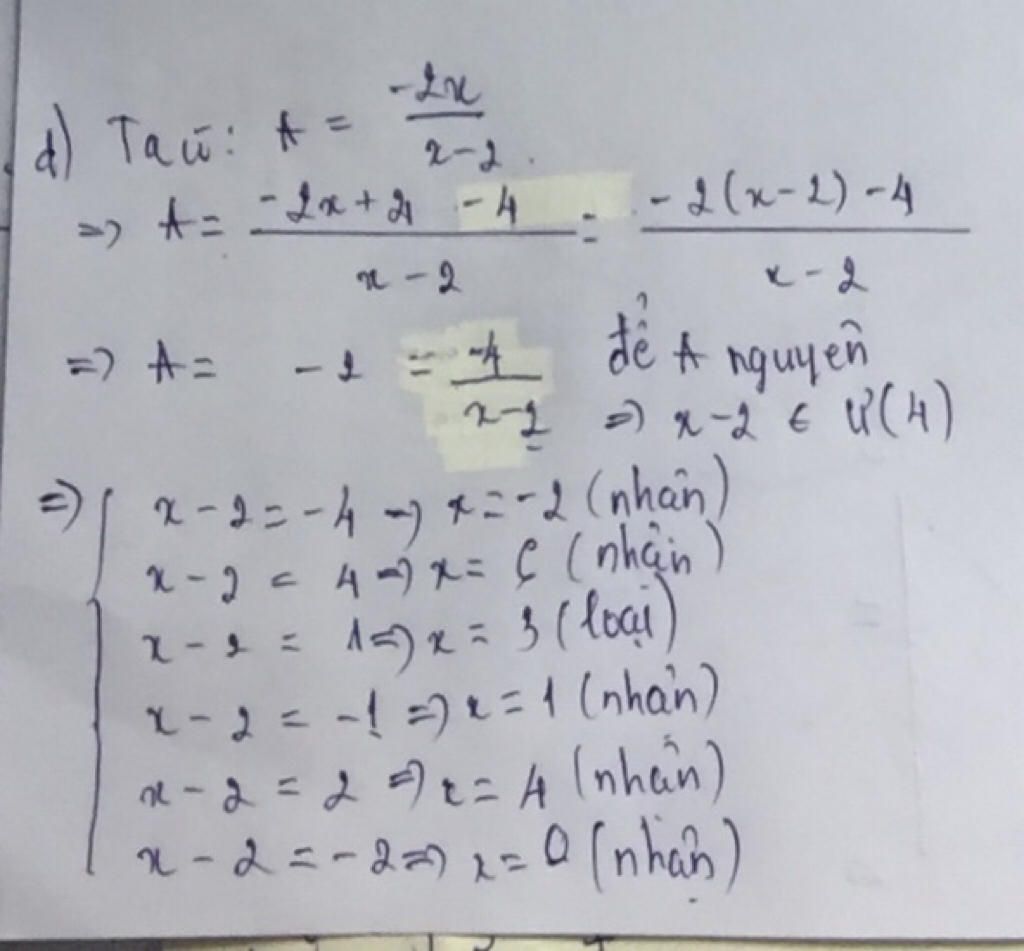 d) Ta có: A = \frac{-2x}{x-2}.
=> A = \frac{-2x+4 -4}{x-2} = \frac{-2(x-2)-4}{x-2}
=> A = -2 = \frac{-4}{x-2} để A nguyên
=> x-2 ∈ Ư(4)
=> x-2 = -4 => x = -2 (nhận)
x-2 = 4 => x = 6 (nhận)
x-2 = 1 => x = 3 (loại)
x-2 = -1 => x = 1 (nhận)
x-2 = 2 => x = 4 (nhận)
x-2 = -2 => x = 0 (nhận)